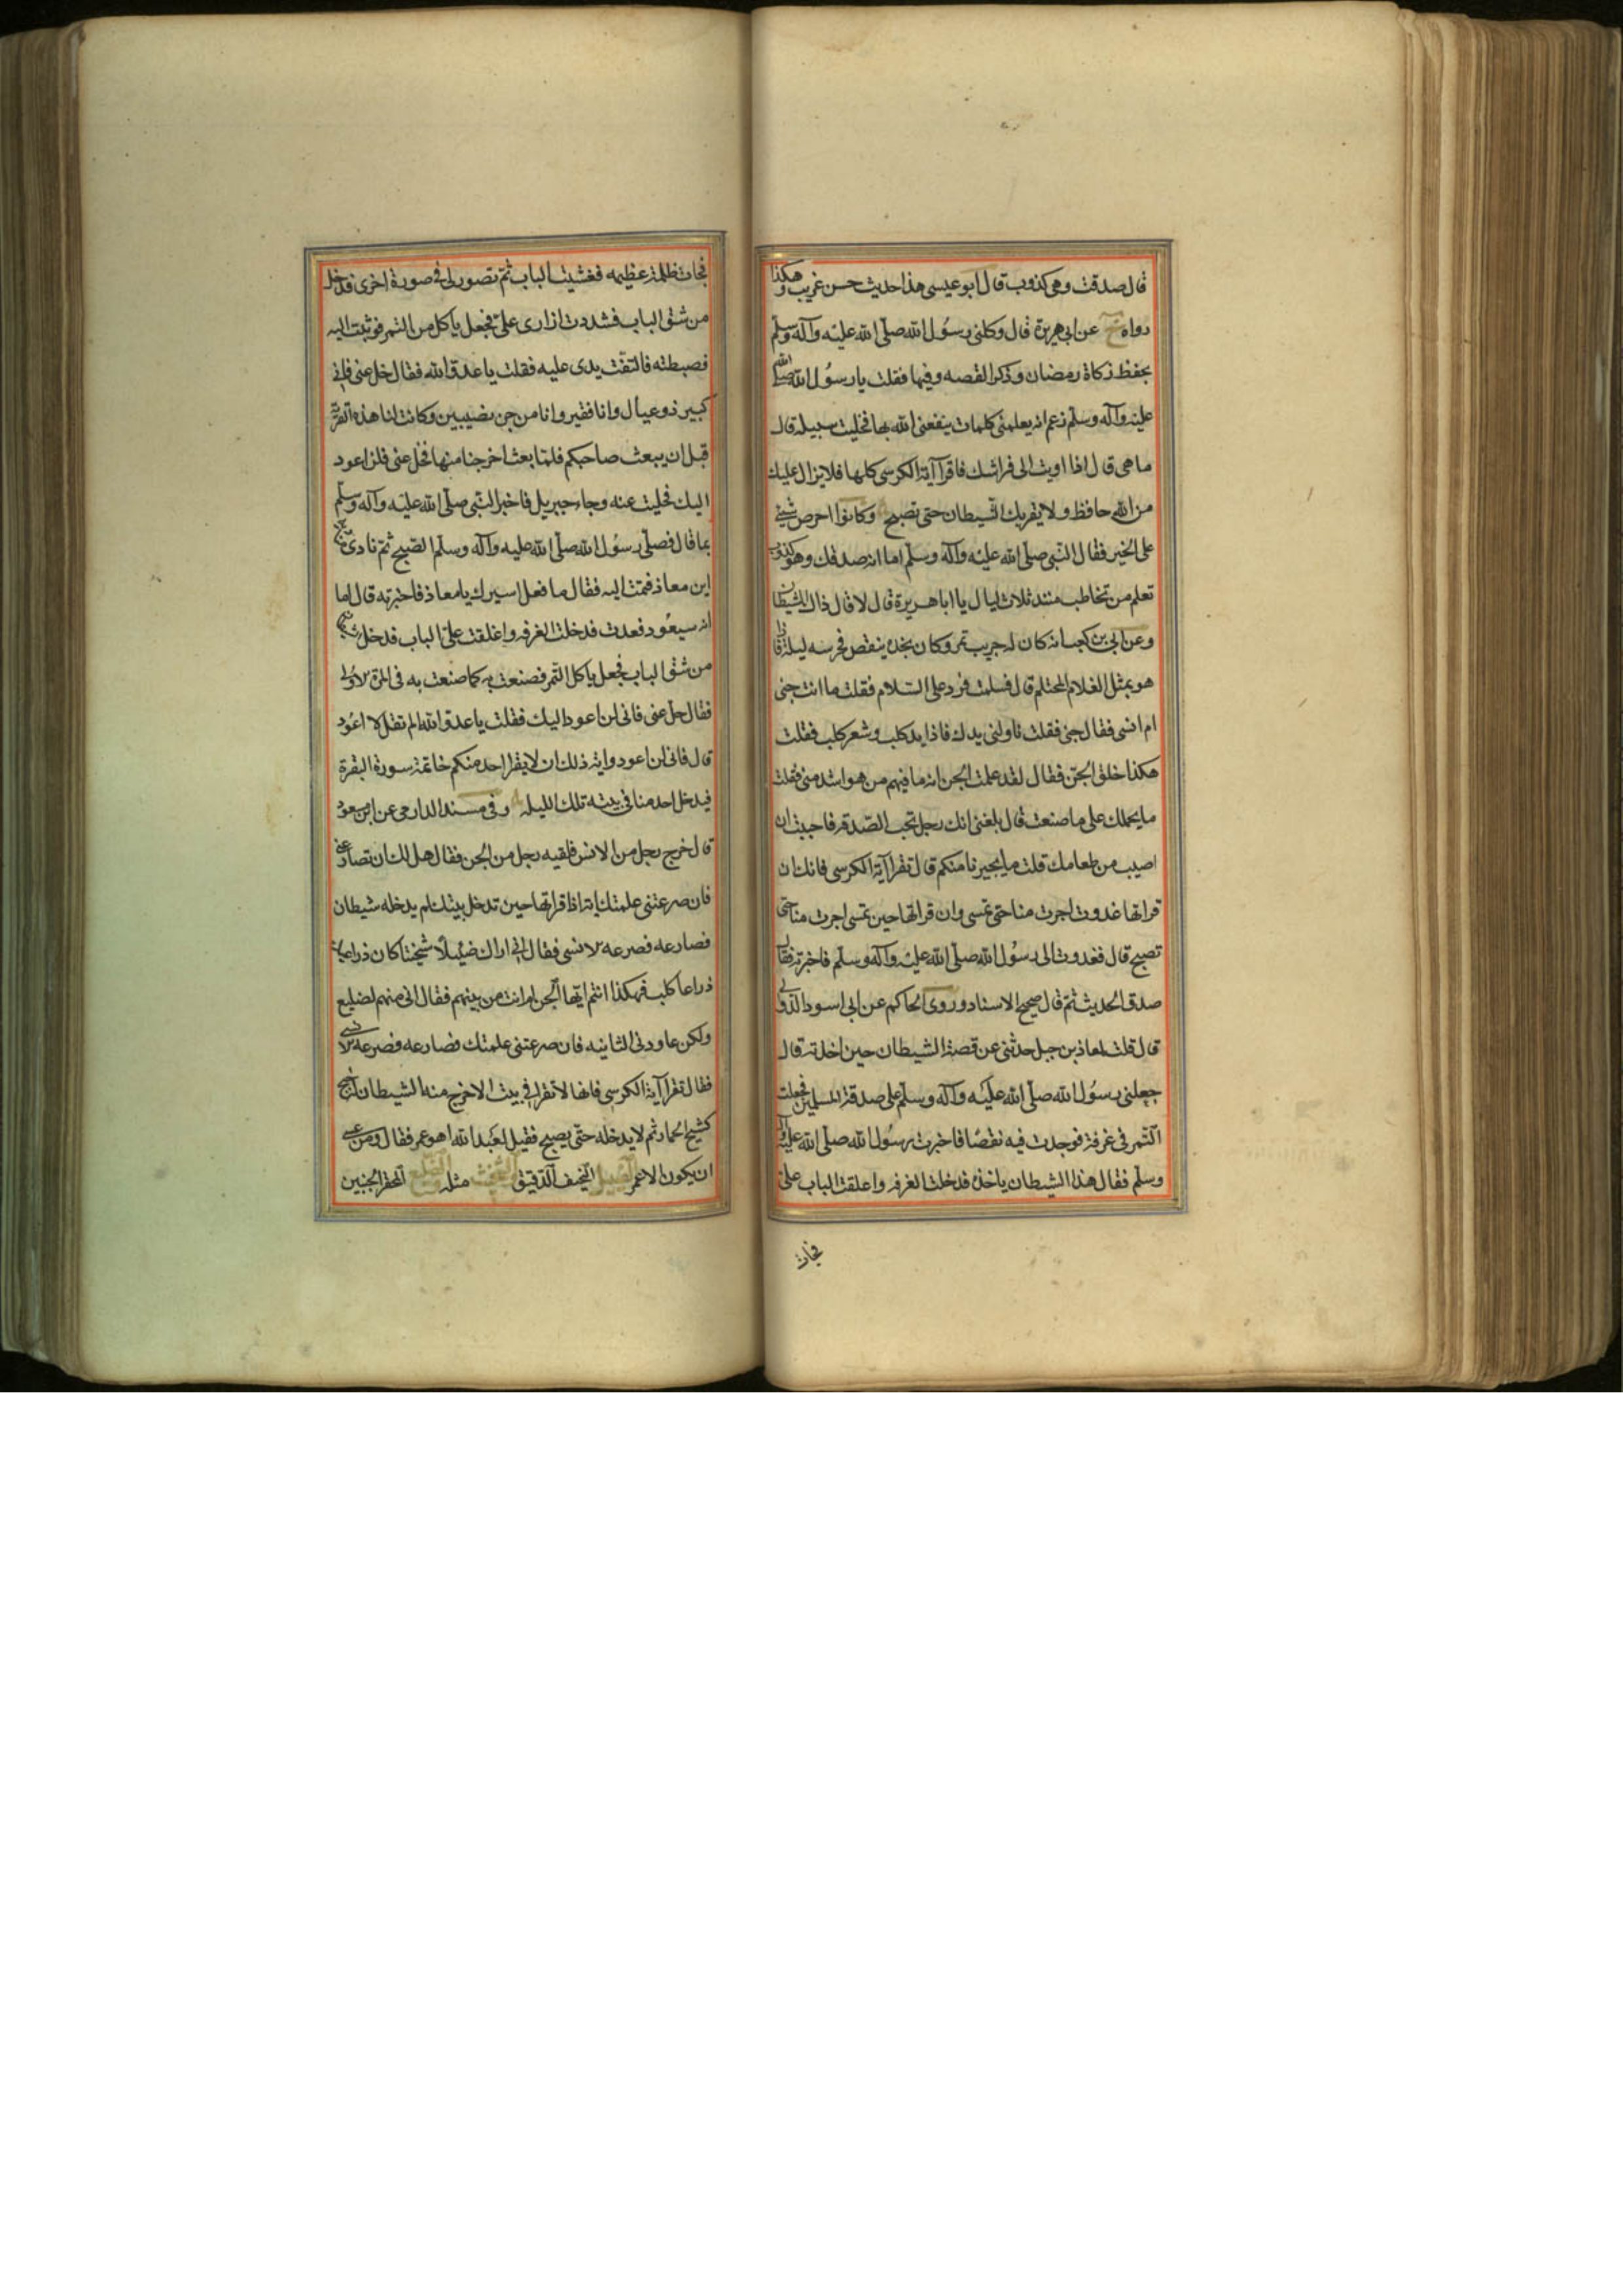 قال صدقت وهى كذوب قال ابو عيسى هذا حديث حسن غريب وهكذا
رواه خ عن ابى هريرة قال وكلنى رسول الله صلى الله عليه وآله وسلم
بحفظ زكاة رمضان وذكر القصه وفيها فقلت يا رسول الله صلى الله
عليه وآله وسلم زعم انه يعلمنى كلمات ينفعنى الله بها فخليت سبيله قال
ما هى قال اذا اويت الى فراشك فاقرآ آية الكرسى كلها فلا يزال عليك
من الله حافظ ولا يقربك الشيطان حتى تصبح وكانوا احرص شئ
على الخير فقال النبى صلى الله عليه وآله وسلم اما انه صدقك وهو كذوب
تعلم من تخاطب منذ ثلاث ليال يا ابا هريرة قال لا قال ذاك الشيطان
وعن ابى بن كعب انه كان له جريب تمر وكان يجده ينقص فحرسه ليلة فاذا
هو بمثل الغلام المحتلم قال فسلمت فرد على السلام فقلت ما انت جنى
ام انسى فقال جنى فقلت ناولنى يدك فاذا يد كلب وشعر كلب فقلت
هكذا خلق الجن فقال لقد علمت الجن انه ما فيهم من هو اشد منى فقلت
ما يحملك على ما صنعت قال بلغنى انك رجل تحب الصدقه فاحببت ان
اصيب من طعامك قلت ما يجيرنا منكم قال تقرا آية الكرسى فانك ان
قراتها غدوت اجرت منا حتى تمسى وان قراتها حين تمسى اجرت منا حتى
تصبح قال فغدوت الى رسول الله صلى الله عليه وآله وسلم فاخبرته فقال
صدق الحديث ثم قال صحيح الاسناد وروى الحاكم عن ابى اسود الدؤلى
قال قلت لمعاذ بن جبل حدثنى عن قصة الشيطان حين اخذته قال
جعلنى رسول الله صلى الله عليه وآله وسلم على صدقة المسلمين فجعلت
التمر فى غرفة فوجدت فيه نقصا فاخبرت رسول الله صلى الله عليه وآله
وسلم فقال هذا الشيطان ياخذه فدخلت الغرفه واغلقت الباب على
فجات
فجات ظلمة عظيمه فغشيت الباب ثم تصور لى فى صورة اخرى فدخل
من شق الباب فشددت ازارى على فجعل ياكل من التمر فوثبت اليه
فضبطته فالتفت يدى عليه فقلت يا عدو الله فقال خل عنى فانى
كبير ذو عيال وانا فقير وانا من جن نصيبين وكانت لنا هذه القرية
قبل ان يبعث صاحبكم فلما بعث اخرجنا منها فخل عنى فلن اعود
اليك فخليت عنه وجاء جبريل فاخبر النبى صلى الله عليه وآله وسلم
بما قال فصلى رسول الله صلى الله عليه وآله وسلم الصبح ثم نادى
اين معاذ فقمت اليه فقال ما فعل اسيرك يا معاذ فاخبرته قال اما
انه سيعود فعدت فدخلت الغرفه واغلقت على الباب فدخل
من شق الباب فجعل ياكل التمر فصنعت به كما صنعت به فى المرة الاولى
فقال خل عنى فانى لن اعود اليك فقلت يا عدو الله الم تقل لا اعود
قال فانى لن اعود واية ذلك ان لا يقرا احد منكم خاتمة سورة البقرة
فيدخل احد منا فى بيته تلك الليله وفى مسند الدارمى عن ابن مسعود
قال خرج رجل من الانس فلقيه رجل من الجن فقال هل لك ان تصارعنى
فان صرعتنى علمتك اية اذا قراتها حين تدخل بيتك لم يدخله شيطان
فصارعه فصرعه الانسى فقال انى اراك ضئيلا شخيتا كان ذراعيك
ذراعا كلب فهكذا انتم ايها الجن ام انت من بينهم فقال انى منهم لضليع
ولكن عاودنى الثانيه فان صرعتنى علمتك فصارعه فصرعه الانسى
فقال تقرا آية الكرسى فانها لا تقرا فى بيت الا خرج منه الشيطان
كشيخ الحمار ثم لا يدخله حتى يصبح فقيل لعبد الله اهو عمر فقال ومن عسى
ان يكون الا عمر الضئيل النحيف الدقيق الشخيت مثله الضليع المجفر الجنبين